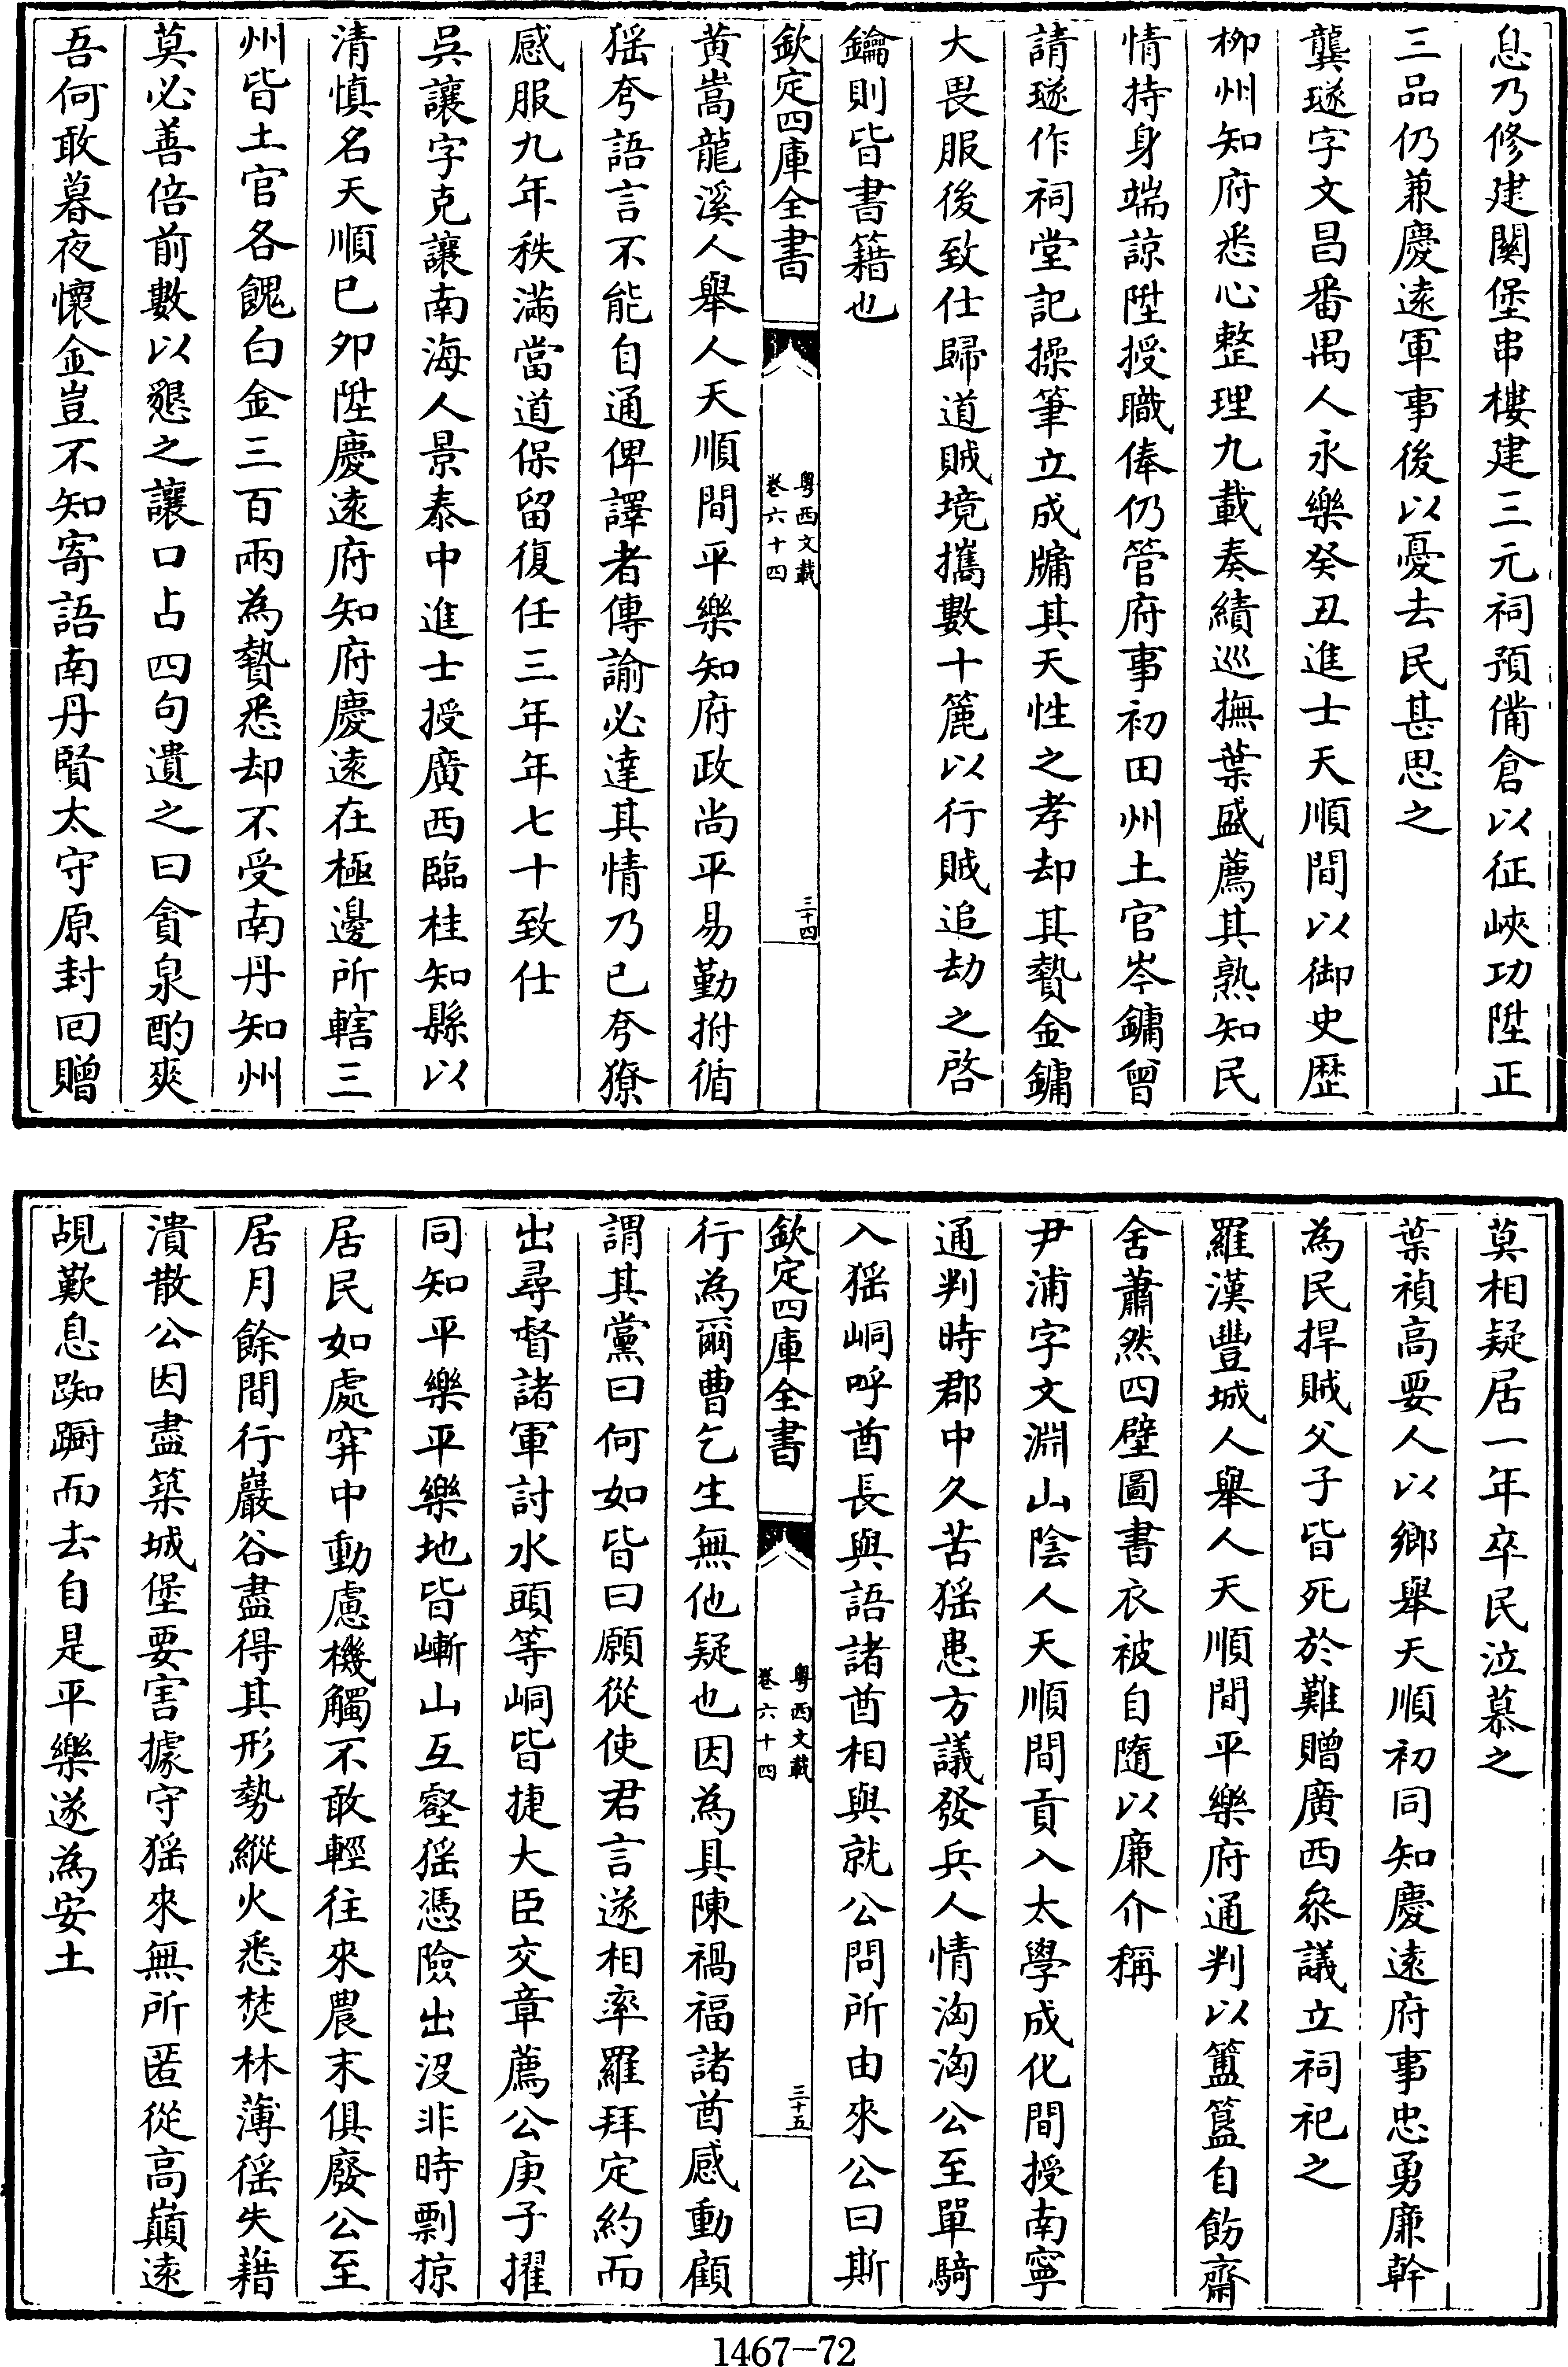 息乃修建關堡串樓建三元祠預備倉以征峽功陞正
三品仍兼慶遠軍事後以憂去民甚思之
龔璲字文昌番禺人永樂癸丑進士天順間以御史歴
柳州知府悉心整理九載奏績巡撫葉盛薦其熟知民
情持身端諒陞授職俸仍管府事初田州土官岑鏞曾
請璲作祠堂記操筆立成牗其天性之孝却其贄金鏞
大畏服後致仕歸道賊境攜數十簏以行賊追劫之啓
鑰則皆書籍也
欽定四庫全書
粤西文載
卷六十四
三十四
黄嵩龍溪人舉人天順間平樂知府政尚平易勤拊循
猺夸語言不能自通俾譯者傳諭必達其情乃已夸獠
感服九年秩滿當道保留復任三年年七十致仕
吳讓字克讓南海人景泰中進士授廣西臨桂知縣以
清慎名天順已卯陞慶遠府知府慶遠在極邊所轄三
州皆土官各餽白金三百兩為贄悉却不受南丹知州
莫必善倍前數以懇之讓口占四句遺之曰貪泉酌爽
吾何敢暮夜懷金豈不知寄語南丹賢太守原封回贈
莫相疑居一年卒民泣慕之
葉禎高要人以鄉舉天順初同知慶遠府事忠勇廉幹
為民捍賊父子皆死於難贈廣西叅議立祠祀之
羅漢豐城人舉人天順間平樂府通判以簠簋自飭齋
舍蕭然四壁圖書衣被自隨以廉介稱
尹浦字文淵山陰人天順間貢入太學成化間授南寧
通判時郡中久苦猺患方議發兵人情洶洶公至單騎
入猺峒呼酋長與語諸酋相與就公問所由來公曰斯
欽定四庫全書
粤西文載
卷六十四
三十五
行為爾曹乞生無他疑也因為具陳禍福諸酋感動顧
謂其黨曰何如皆曰願從使君言遂相率羅拜定約而
出尋督諸軍討水頭等峒皆捷大臣交章薦公庚子擢
同知平樂平樂地皆嶄山互壑猺憑險出沒非時剽掠
居民如處穽中動慮機觸不敢輕往來農末俱廢公至
居月餘間行巖谷盡得其形勢縱火悉焚林薄徭失藉
潰散公因盡築城堡要害據守猺來無所匿從高巔遠
覘歎息踟蹰而去自是平樂遂為安土
1467-72